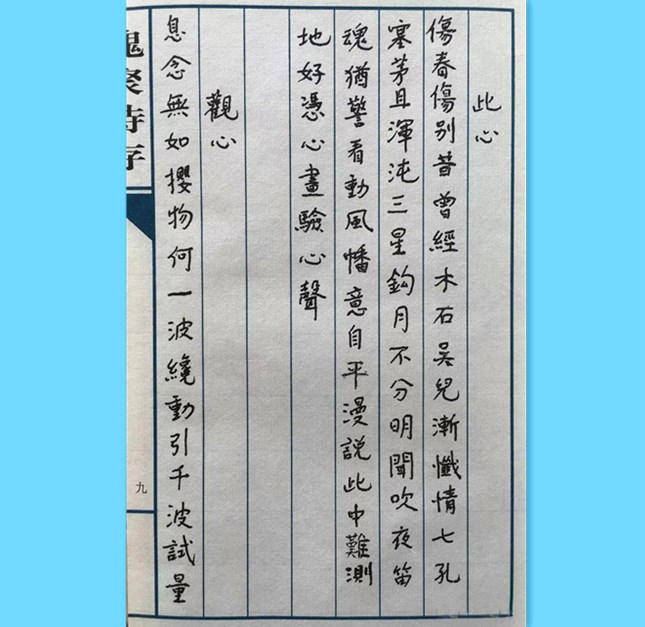 此心
傷春傷別昔曾經木石吳兒漸懺情七孔
塞茅且渾沌三星鈎月不分明聞吹夜笛
魂猶警看動風幡意自平漫說此中難測
地好憑心畫驗心聲
觀心
息念無如攖物何一波纔動引千波試量
九